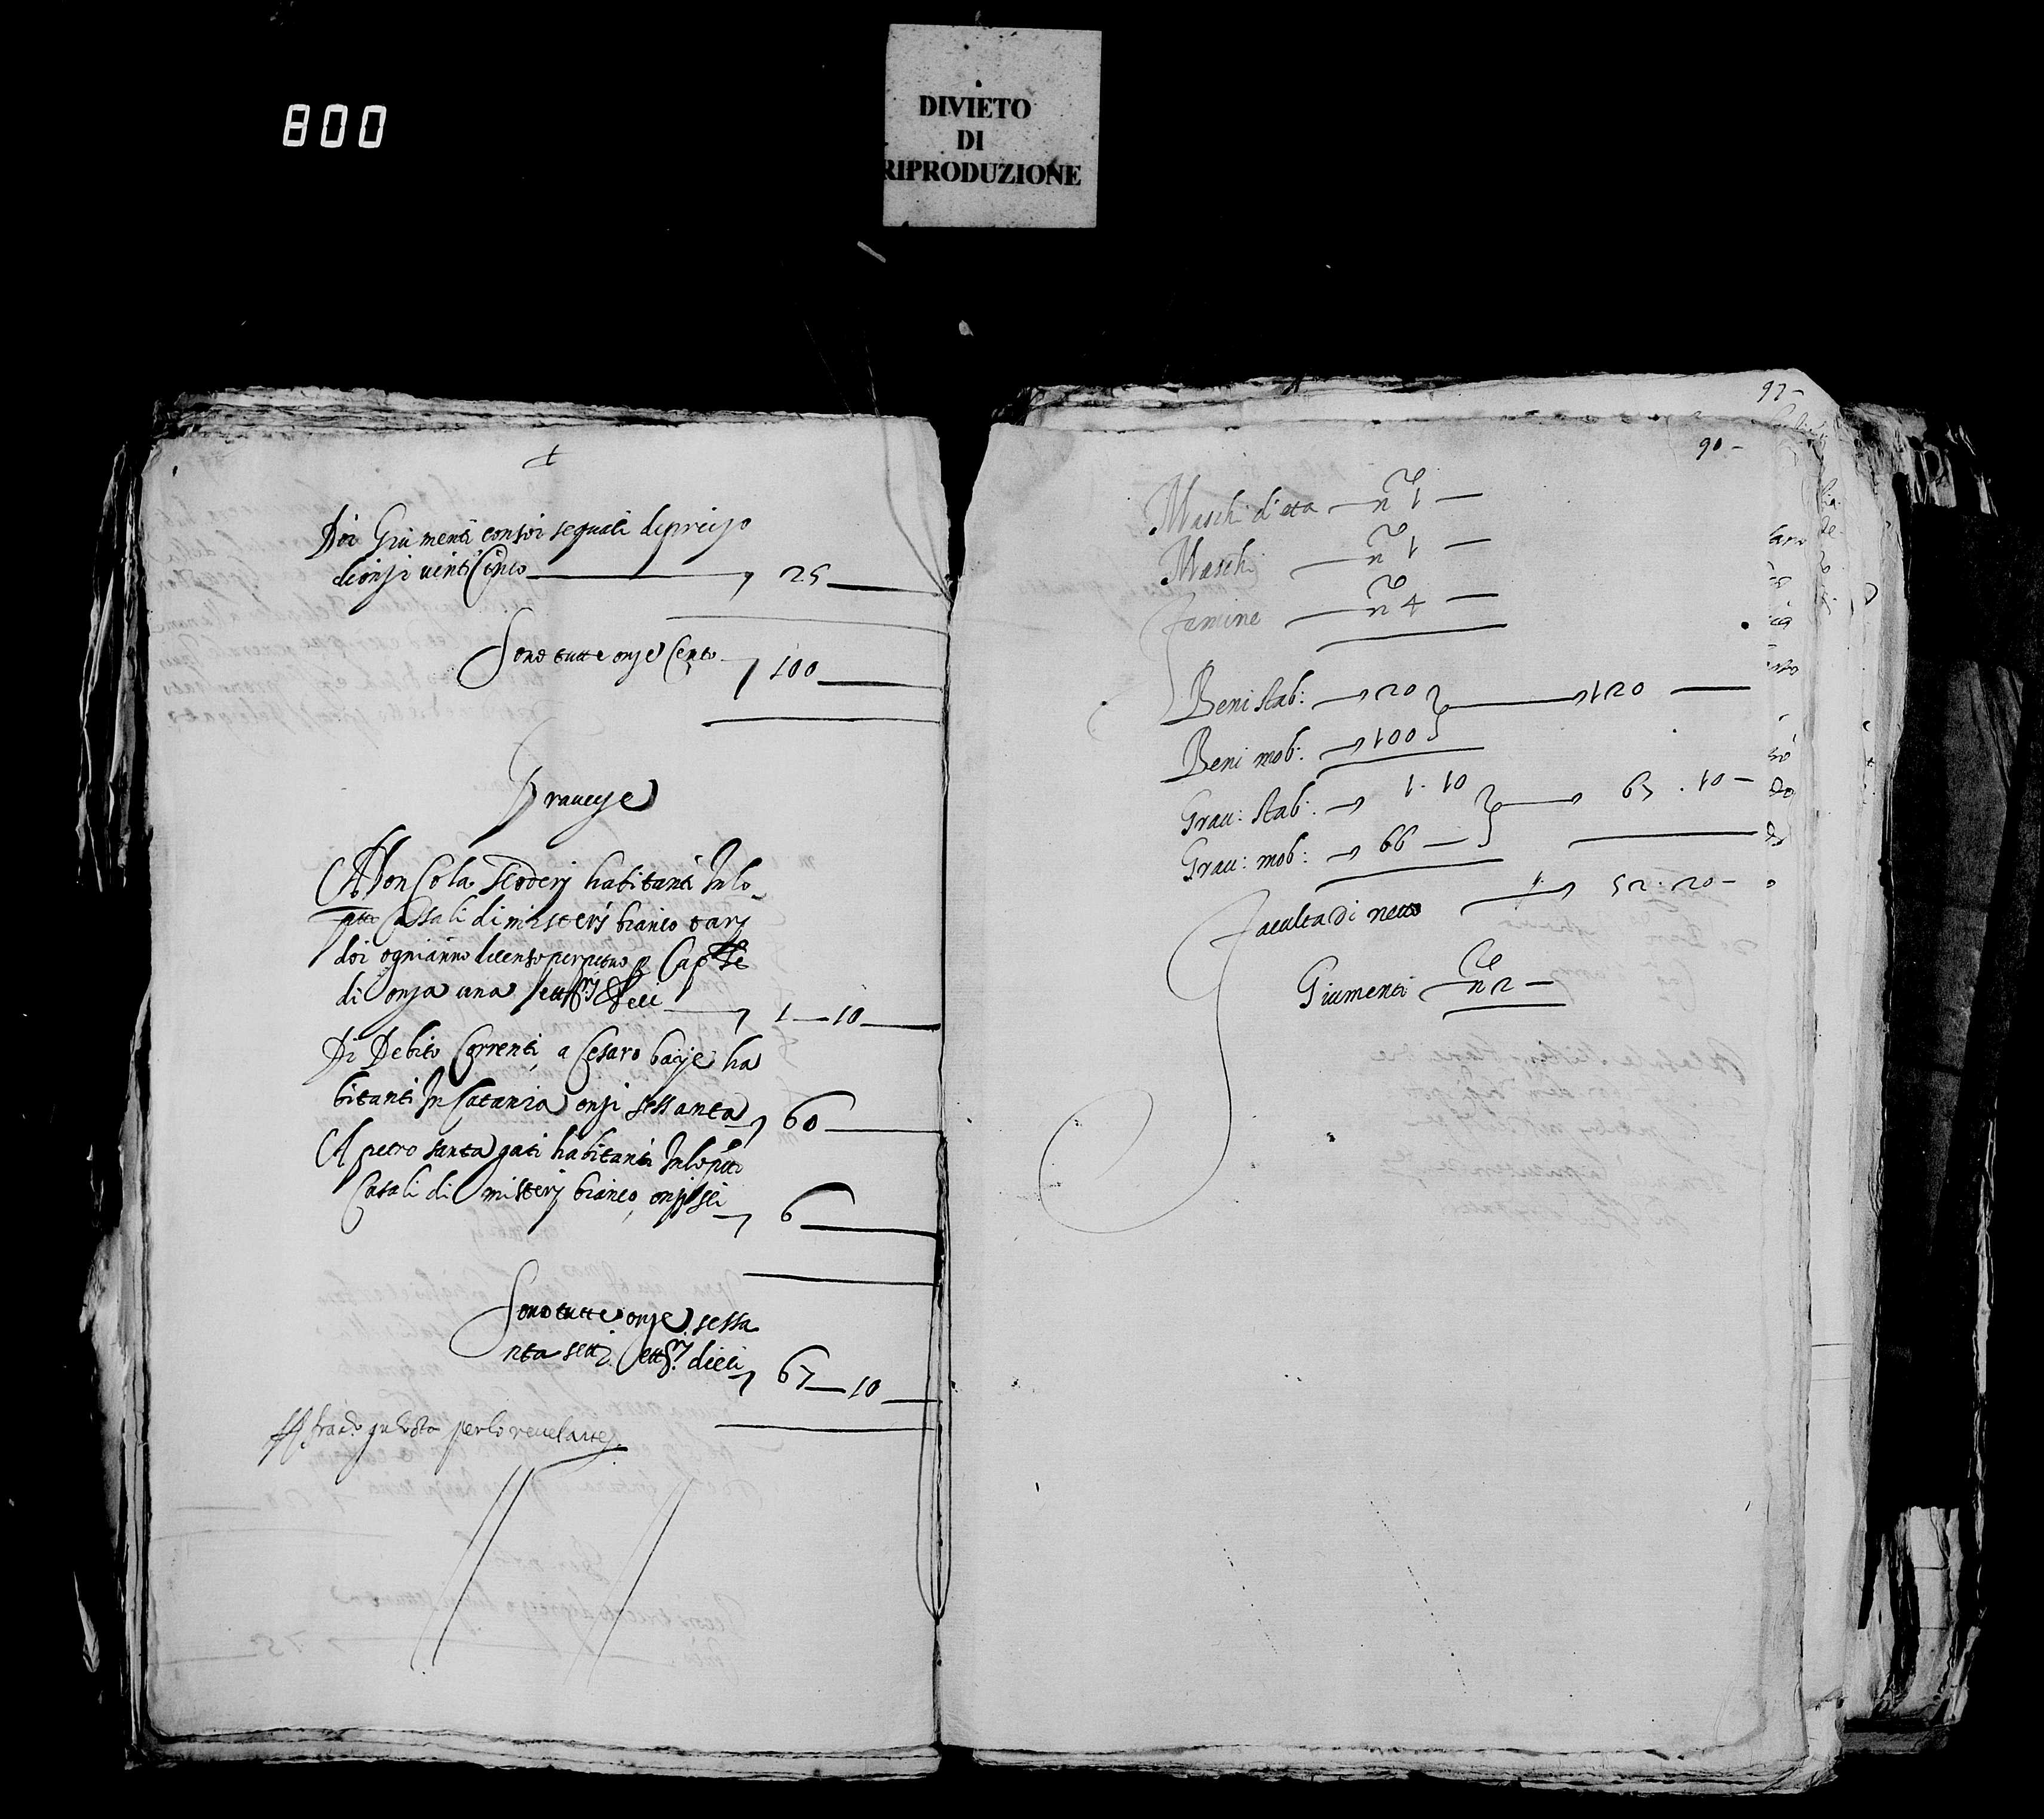 800
DIVIETO
DI
RIPRODUZIONE
+
Doi Giumenti con soi sequali di prezzo
di onzi vinti Cinco 25
Sono tutte onze Cento 100
Gravezze
A Don Cola habitanti In lo
ditto Casali di misteri bianco tarj
doi ogni anno di censo perpetuo Capte
di onza una et tt.ri deci 1 — 10
Di Debito Correnti a Cesaro habitanti
bitanti In Catania onzi sessanta 60
A petro santa gati habitanti In lo ditto
Casali di misterj bianco onzi sei 6
Sono tutte onze sessa
nta setti et tt.ri dieci 67 — 10
per lo revelante
97 -
90 -
Maschi d'eta — n.ro 1 —
Maschi — n.ro 1 —
Famine — n.ro 4 —
Beni stab: 20 120
Beni mob: 100
Grav: stab: 1.10 67.10 —
Grav: mob: 66 —
Faculta di netto 52.20 —
Giumenti n.ro 2 —